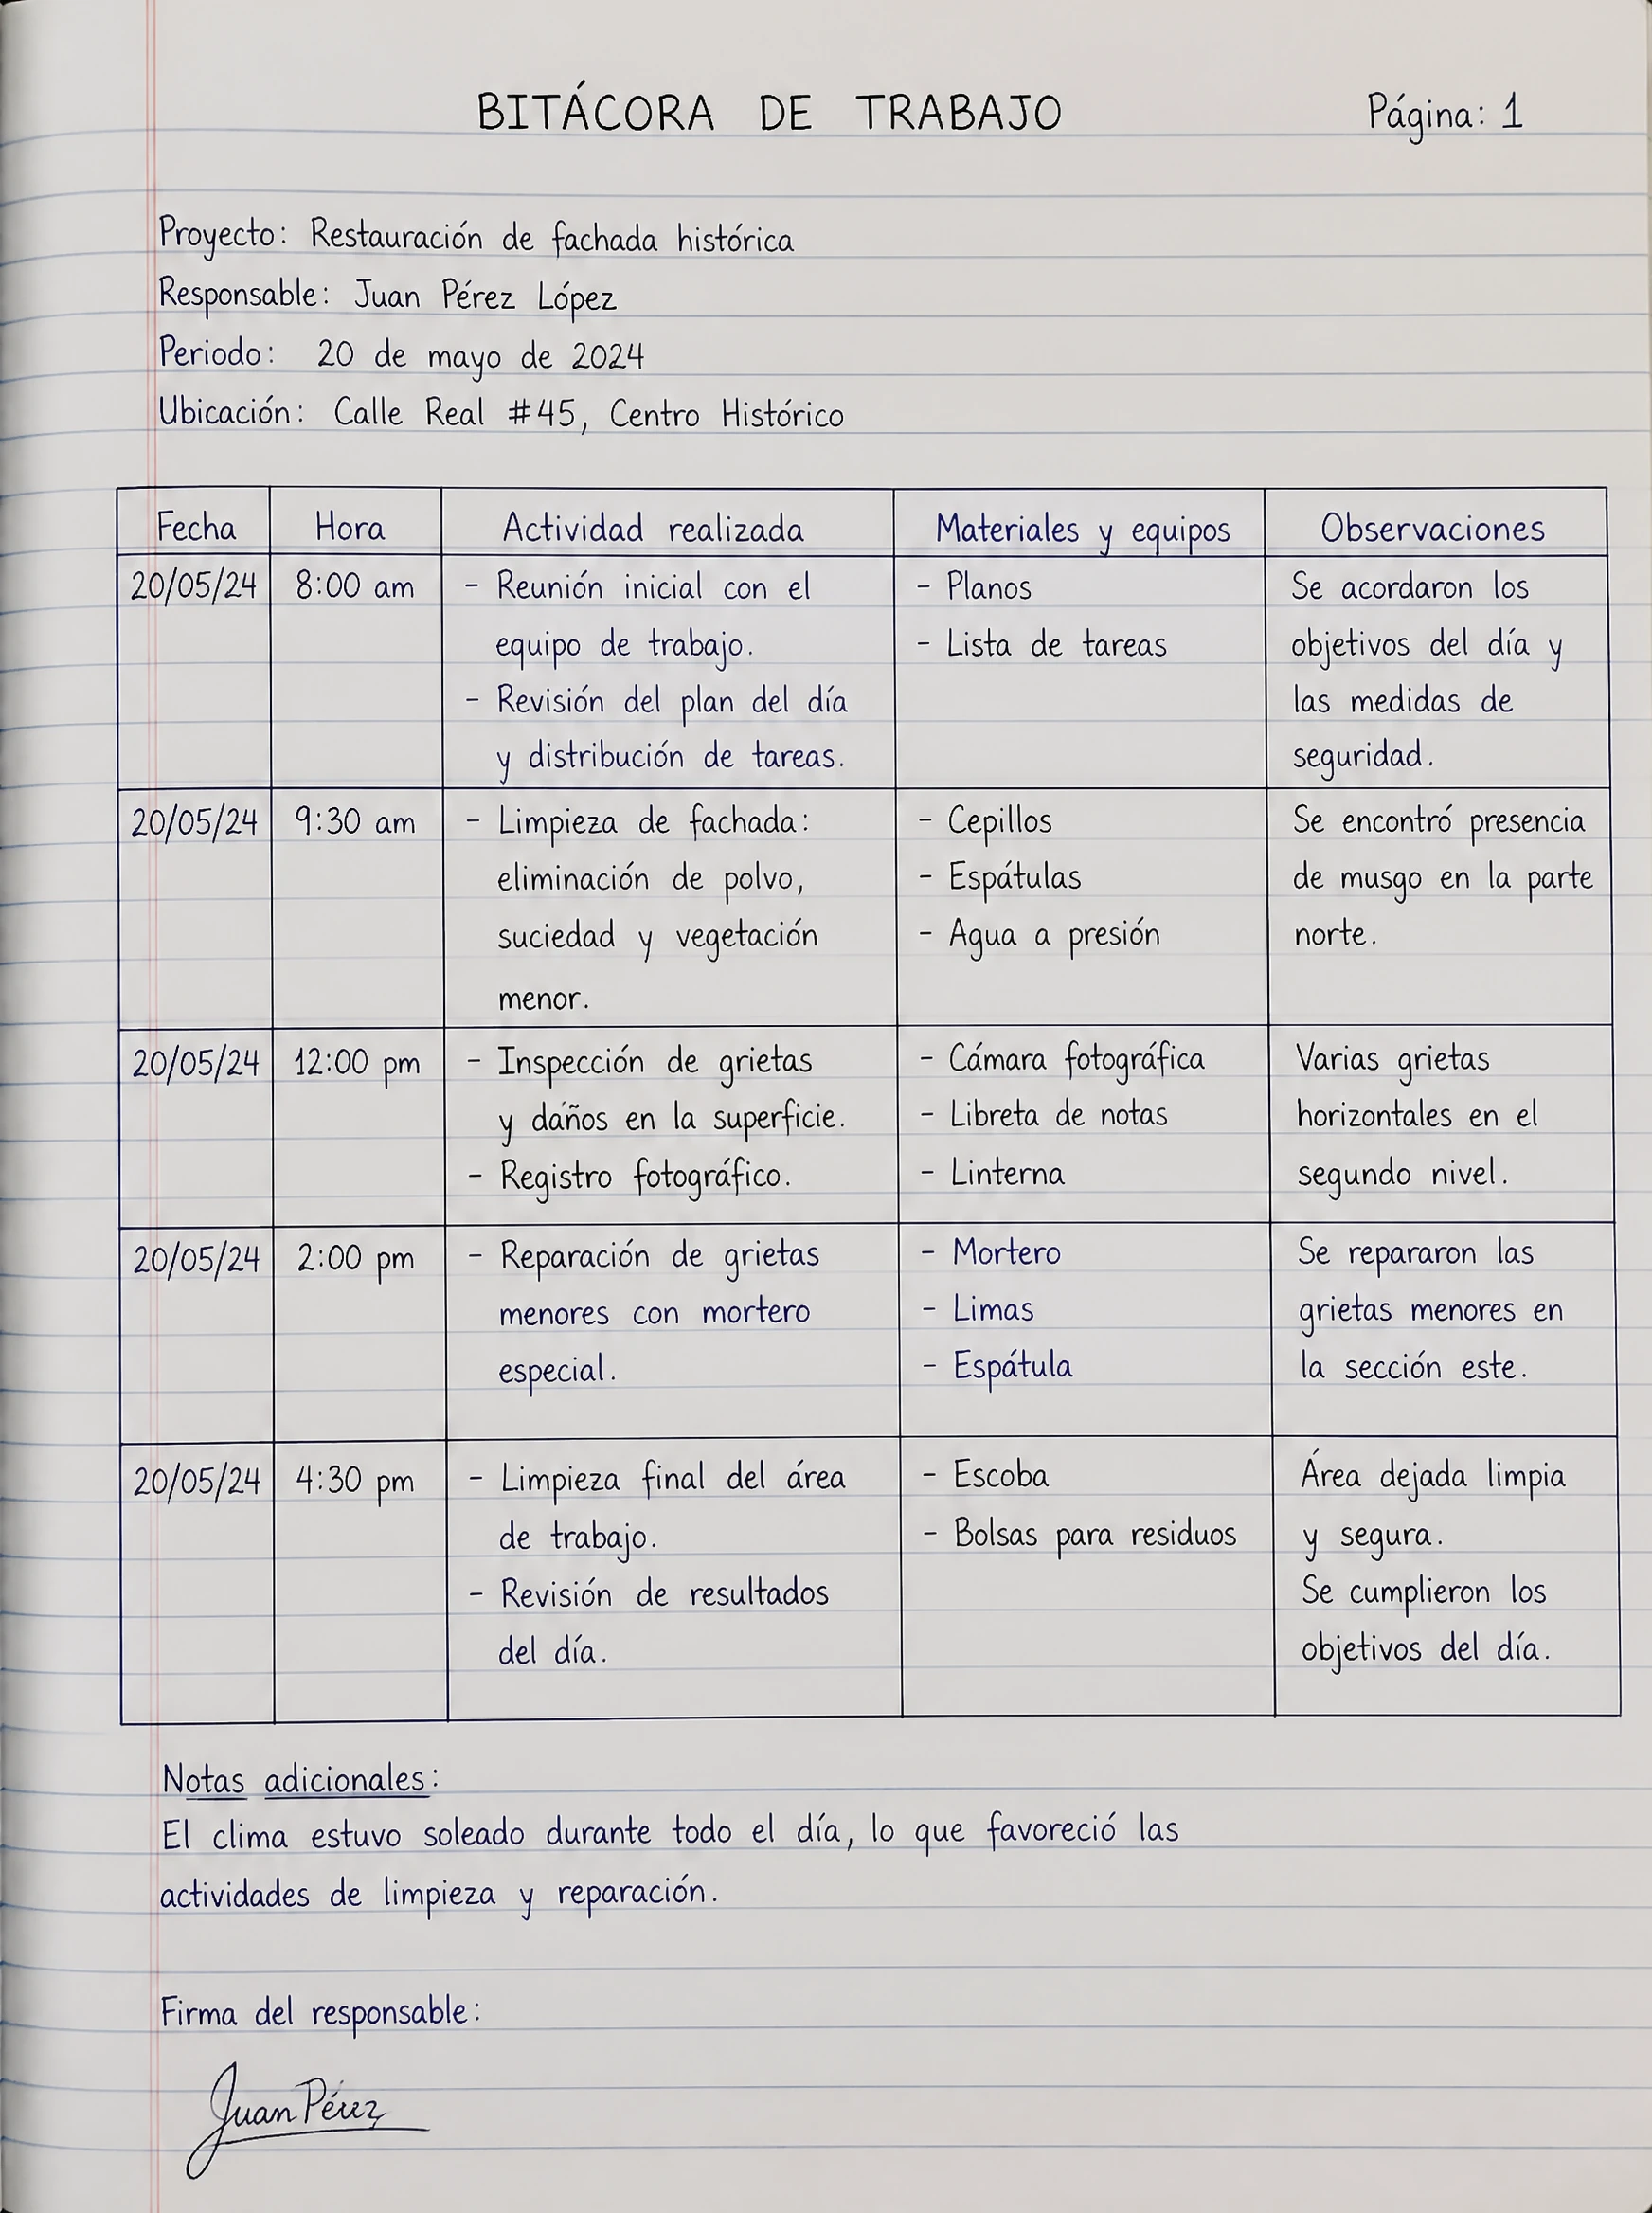 BITÁCORA DE TRABAJO Página: 1
Proyecto: Restauración de fachada histórica
Responsable: Juan Pérez López
Periodo: 20 de mayo de 2024
Ubicación: Calle Real #45, Centro Histórico
Fecha Hora Actividad realizada Materiales y equipos Observaciones
20/05/24 8:00 am - Reunión inicial con el - Planos Se acordaron los
equipo de trabajo. - Lista de tareas objetivos del día y
- Revisión del plan del día las medidas de
y distribución de tareas. seguridad.
20/05/24 9:30 am - Limpieza de fachada: - Cepillos Se encontró presencia
eliminación de polvo, - Espátulas de musgo en la parte
suciedad y vegetación - Agua a presión norte.
menor.
20/05/24 12:00 pm - Inspección de grietas - Cámara fotográfica Varias grietas
y daños en la superficie. - Libreta de notas horizontales en el
- Registro fotográfico. - Linterna segundo nivel.
20/05/24 2:00 pm - Reparación de grietas - Mortero Se repararon las
menores con mortero - Limas grietas menores en
especial. - Espátula la sección este.
20/05/24 4:30 pm - Limpieza final del área - Escoba Área dejada limpia
de trabajo. - Bolsas para residuos y segura.
- Revisión de resultados Se cumplieron los
del día. objetivos del día.
Notas adicionales:
El clima estuvo soleado durante todo el día, lo que favoreció las
actividades de limpieza y reparación.
Firma del responsable:
Juan Pérez